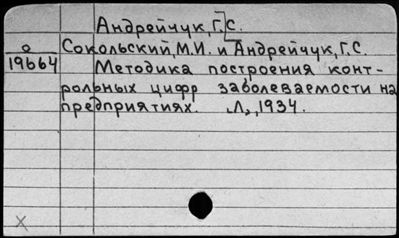 Андрейчук, Г.С.
о Сокольский, М.И. и Андрейчук, Г.С.
19664 Методика построения конт-
рольных цифр заболеваемости на
предприятиях. Л., 1934.
X